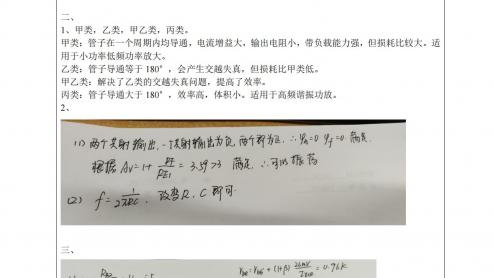 二、
1、甲类，乙类，甲乙类，丙类。
甲类：管子在一个周期内均导通，电流增益大，输出电阻小，带负载能力强，但损耗比较大。适
用于小功率低频功率放大。
乙类：管子导通等于180°，会产生交越失真，但损耗比甲类低。
甲乙类：解决了乙类的交越失真问题，提高了效率。
丙类：管子导通大于180°，效率高，体积小。适用于高频谐振功放。
2、
(1) 两个共射输出，一个共射输出为负，两个即为正，∴φa=0 φf=0. 满足
根据 Av=1+ RF/RE1 = 3.9>3 满足，∴可以振荡
(2) f= 1/2πRC. 改变R、C即可.
三、
rbe=rbb'+(1+β) 26mV/IEQ =0.96K